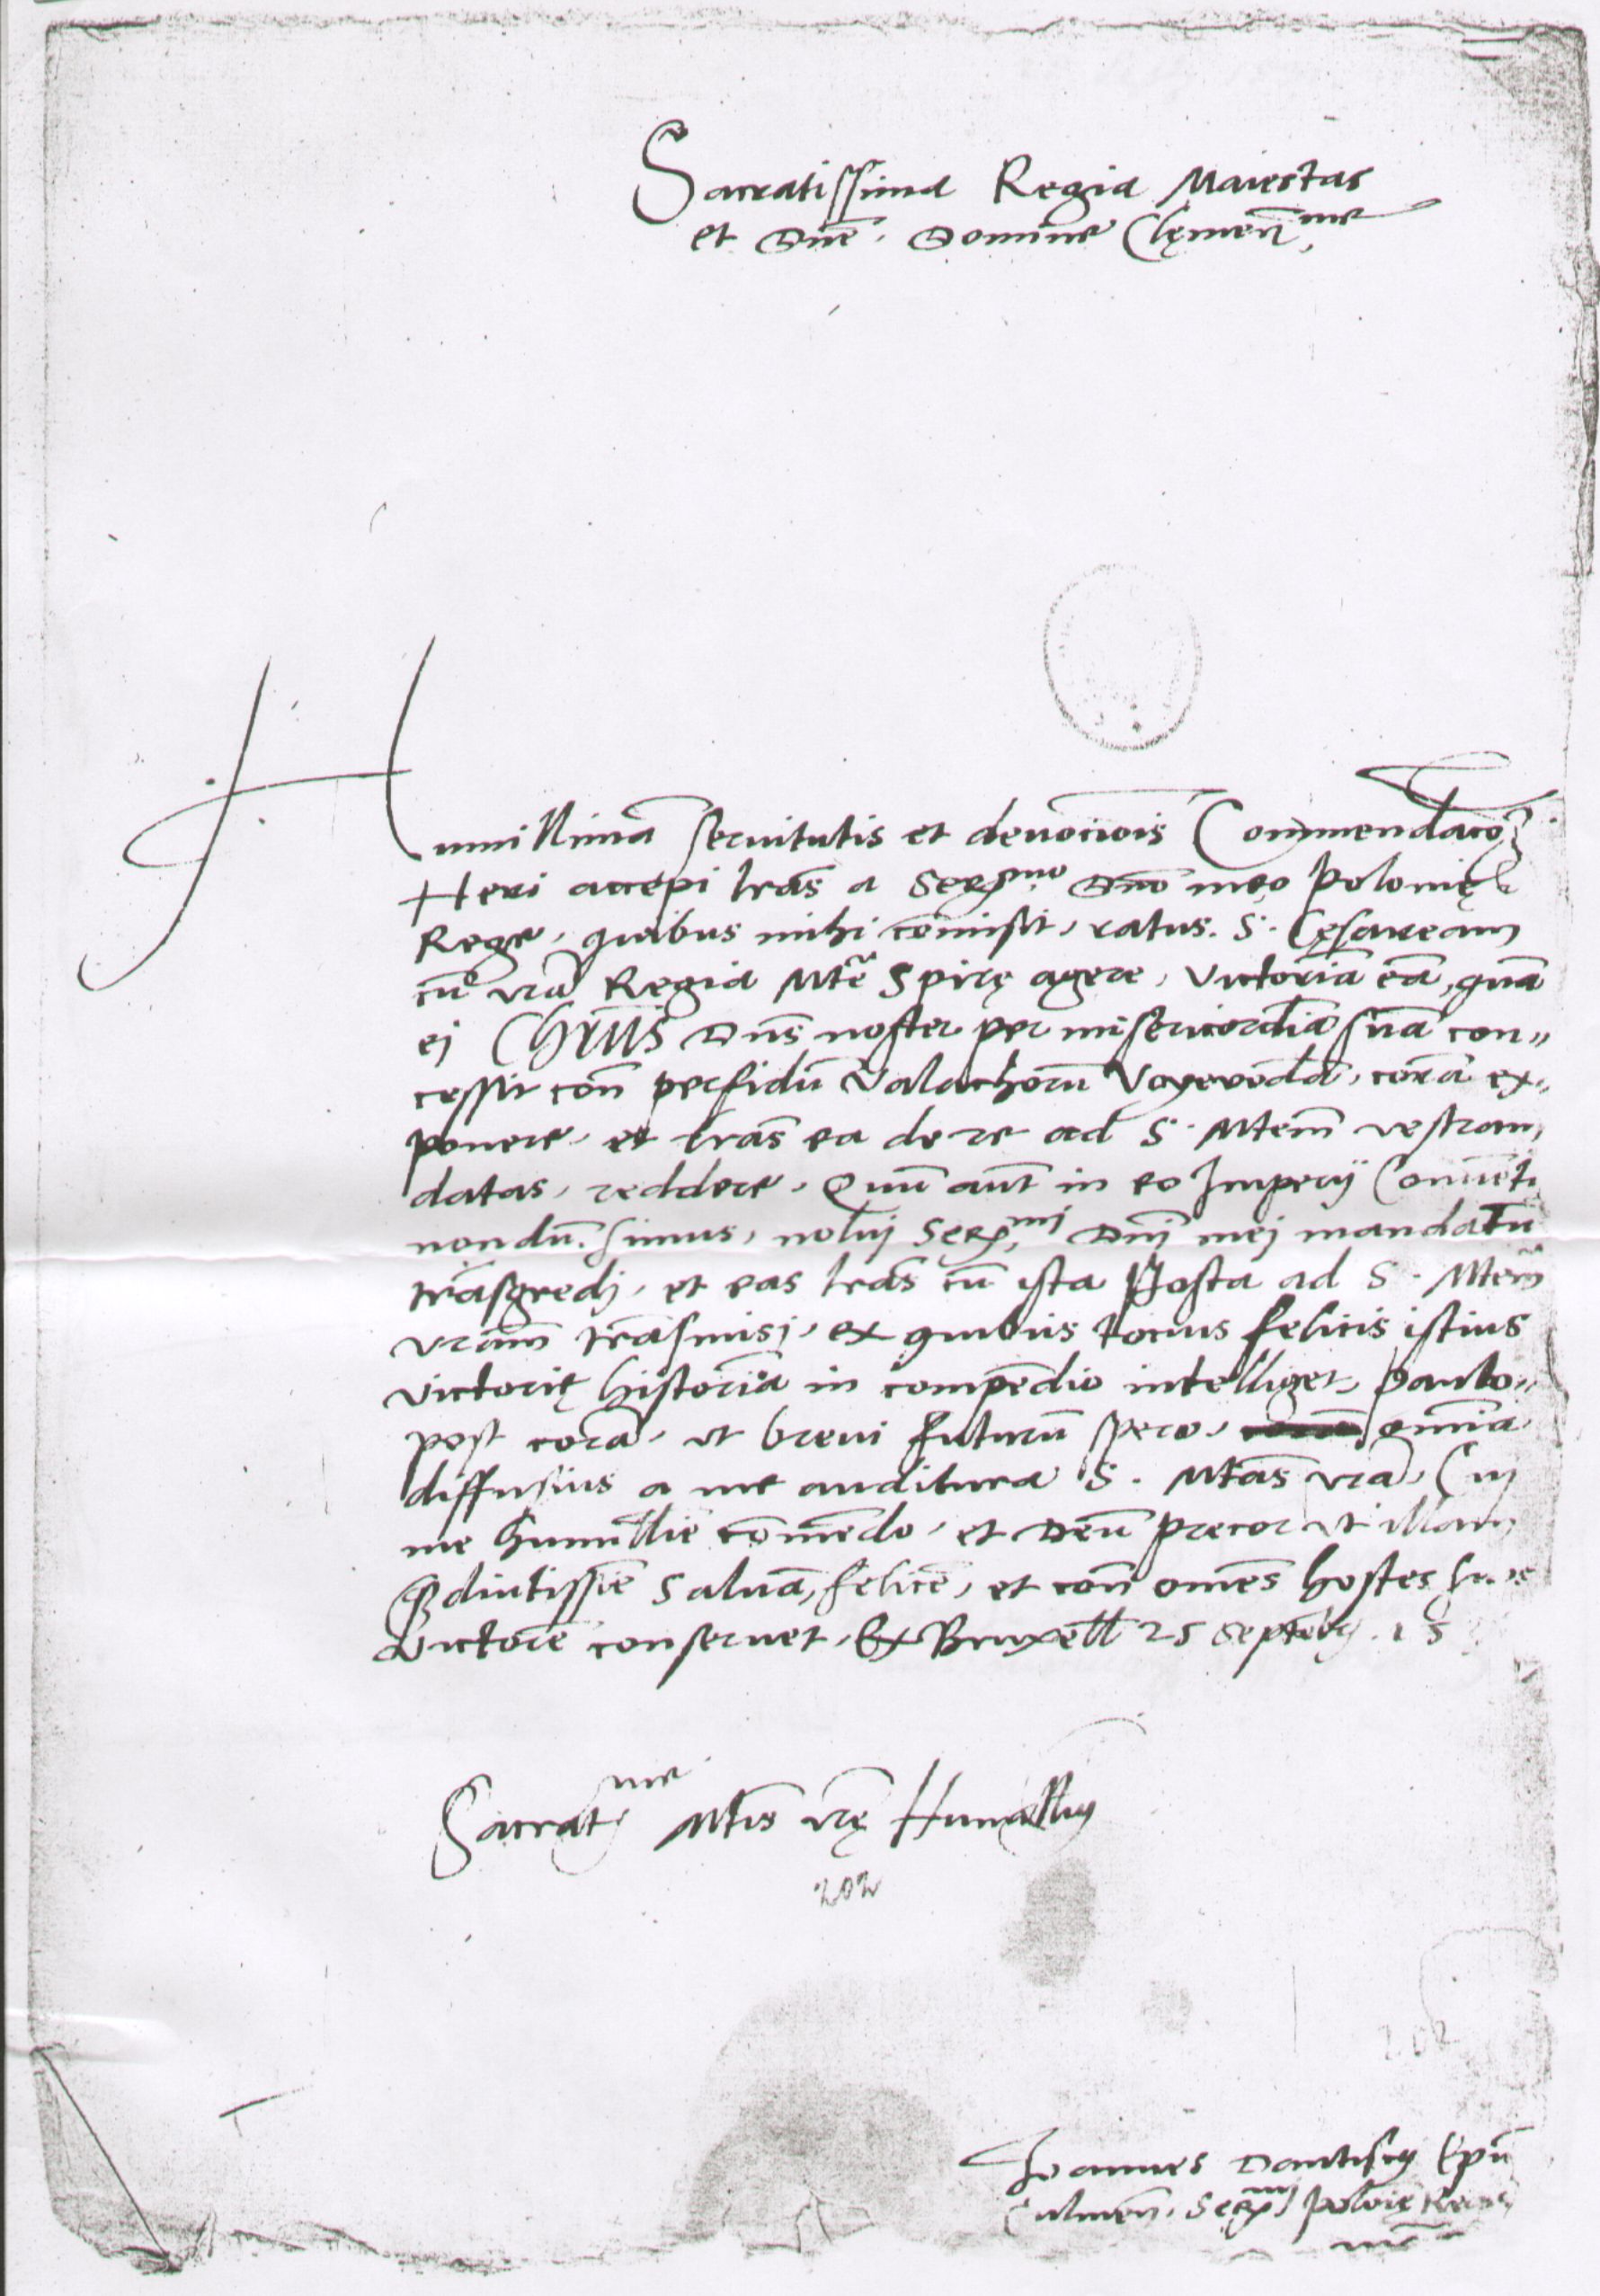 Sacratissima Regia Maiestas
et Dne. Domine Clemen^me
Humillimā servitutis et devocōis Commendacoēm
Heri accepi lrās a Ser^mo Dno meo Polonię
Rege, quibus mihi cōmisit, ratus. S. Cęsaream
cū vrā Regia Mte Spirę agere, Victoriā eā, quā
ej Chrūs Dns noster per misericordiā suā con„
cessit con perfidū Valachorū Voyevodā, corā ex„
ponere, et lrās ea de re ad S. Mtem vestram
datas, reddere, Quū aut in eo Imperij Convētu
nondū simus, noluj Ser^mi Dnj mej mandatū
trāsgredj, et eas lrās cū ista Posta ad S. Mtem
vram trāsmisj, ex quibus tocius felicis istius
victorię historiā in compēdio intelliget, paulo„
post corā, ut brevi futurū spero, omīa
diffusius a me auditura S. Mtas vra, Cuj
me humillīe cōmēdo, et Deū precor ut illam
q diutissīe salvā, felicē, et con omēs hostes
Victorē conservet, Ex Bruxell 25 Septēbr. 15
Sacrat^me Mtis vrę Humilliɡ
202
202
Joannes Dantiscus Epūs
Culmen. Ser^mi Polōię Regis